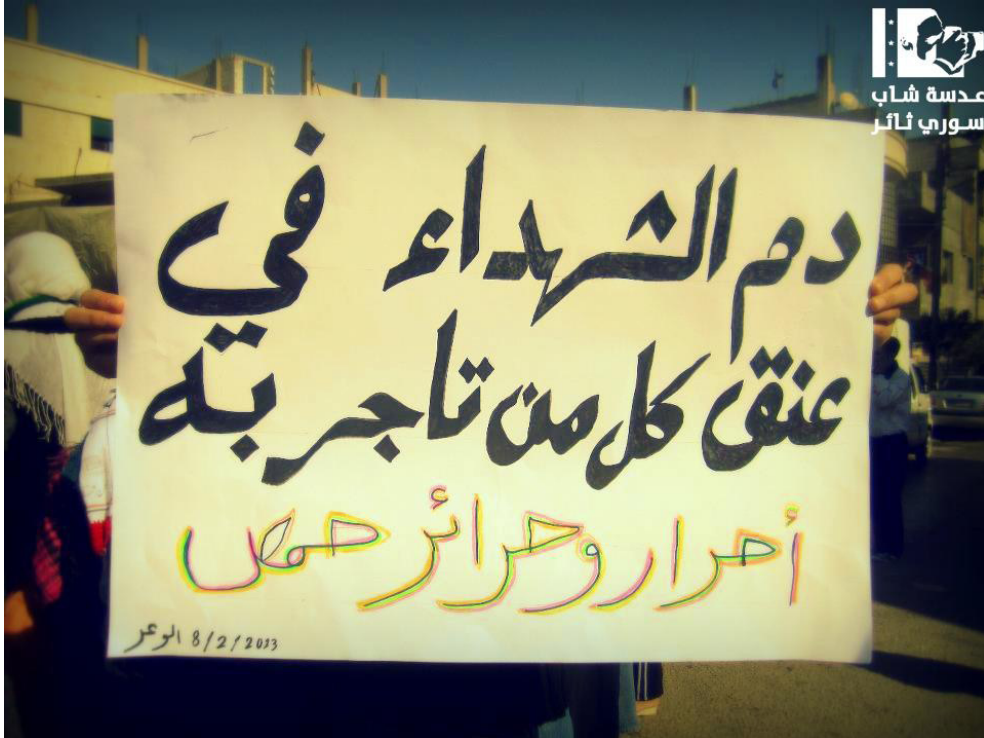 عدسة شاب
سوري ثائر
دم الشهداء في
عنق كل من تاجر به
أحرار وحرائر حمص
الوعر 8/2/2013